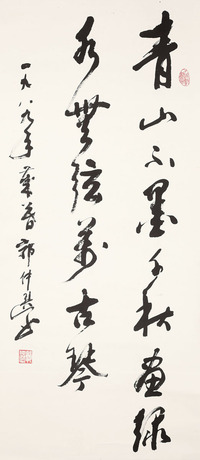 青山不墨千秋画绿
水无弦万古琴
一九八九年 郭仲选书